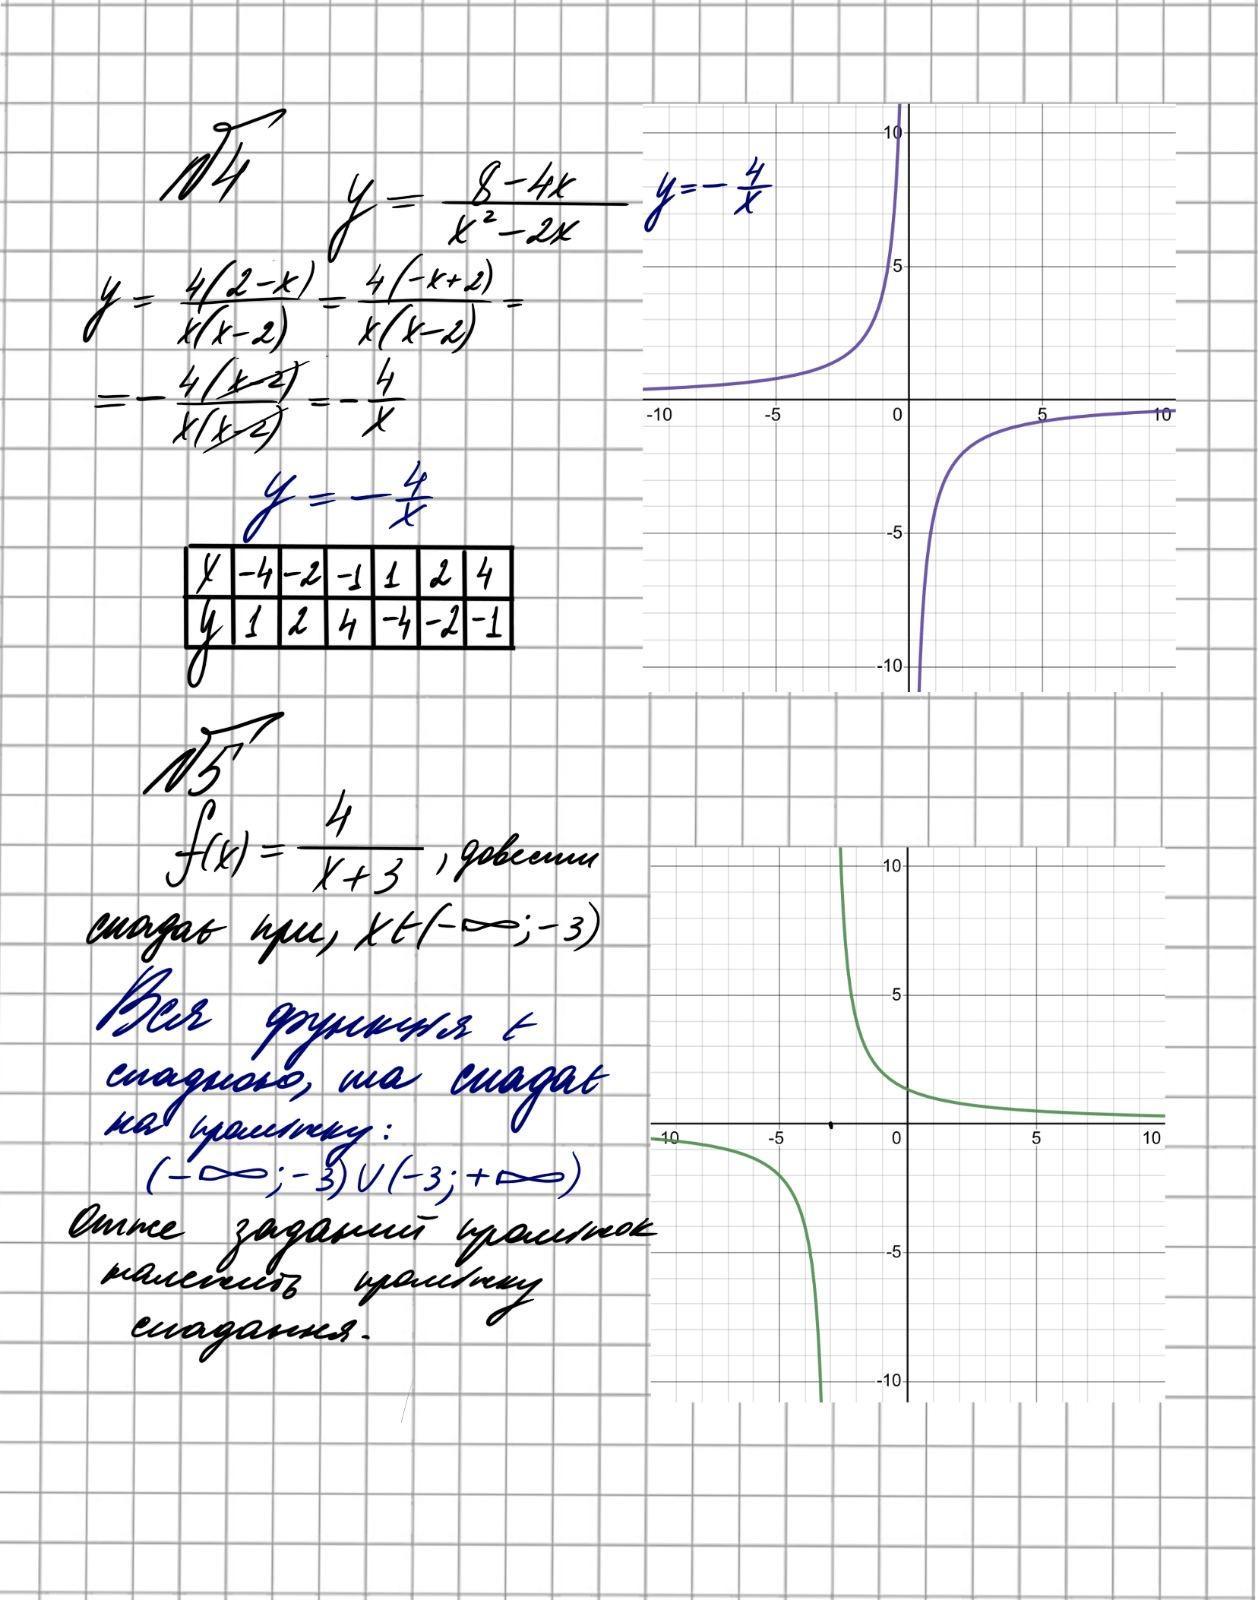 №4
y = (8-4x)/(x²-2x)
y = 4(2-x)/x(x-2) = 4(-x+2)/x(x-2) =
= - 4(x-2)/x(x-2) = - 4/x
y = - 4/x
x -4 -2 -1 1 2 4
y 1 2 4 -4 -2 -1
y = - 4/x
10
5
-10 -5 0 5 10
-5
-10
№5
f(x) = 4/(x+3), довести
спадає при, xє(-∞;-3)
Вся функція є
спадною, та спадає
на проміжку:
(-∞;-3)∪(-3;+∞)
Отже заданий проміжок
належить проміжку
спадання.
10
5
-10 -5 0 5 10
-5
-10